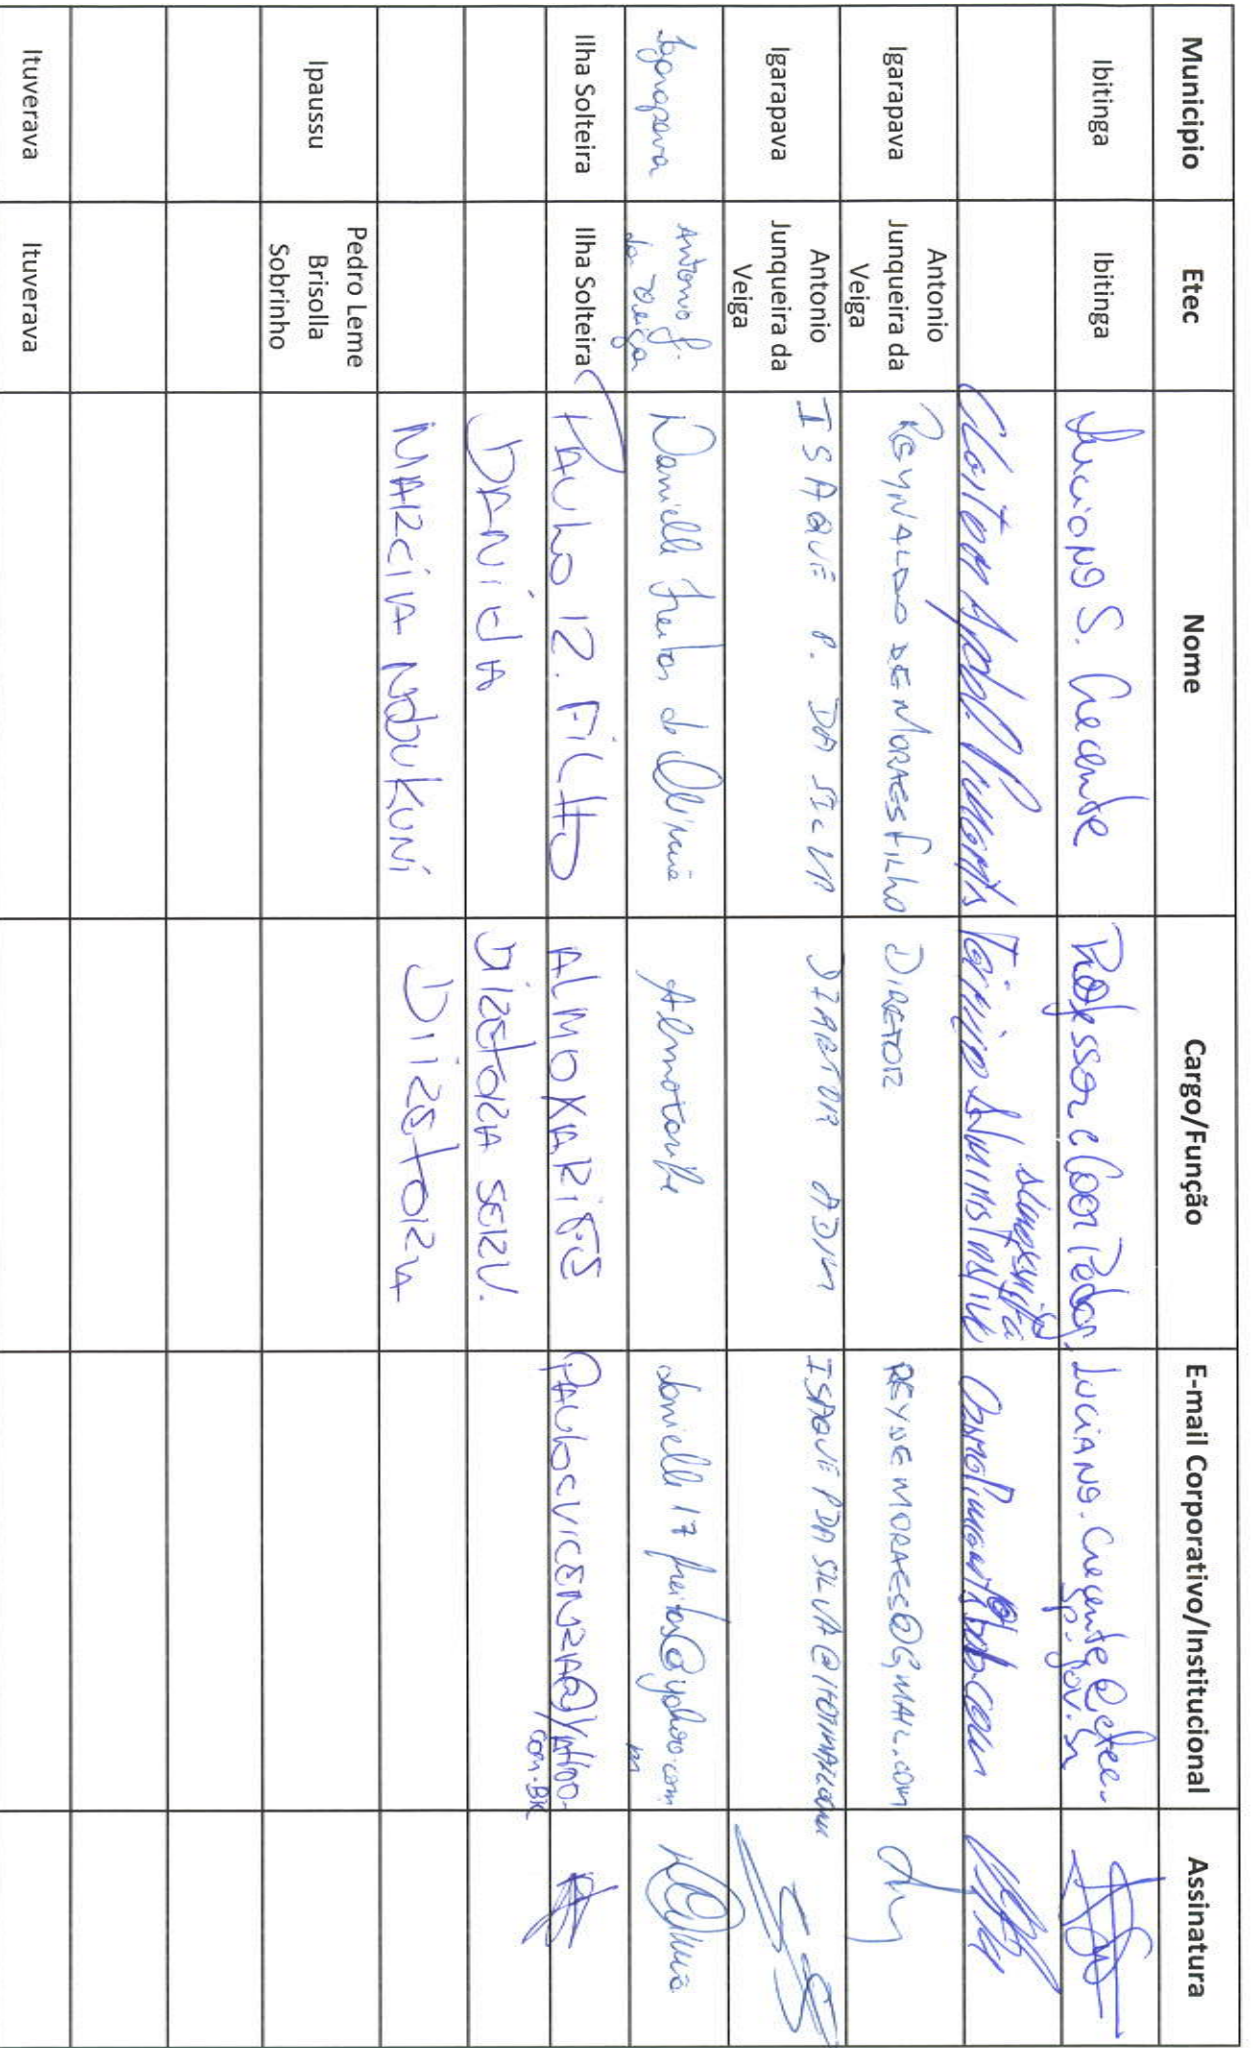 Municipio Etec Nome Cargo/Função E-mail Corporativo/Institucional Assinatura
Ibitinga Ibitinga Luciano S. Crecente Professor e Coor Pedag. luciano.crecente@etec.
sp.gov.br
Técnico Administrativo
Igarapava Antonio
Junqueira da
Veiga REYNALDO DE MORAES FILHO DIRETOR REYDEMORAES@GMAIL.COM
Igarapava Antonio
Junqueira da
Veiga ISAQUE P. DA SILVA DIRETOR ADM ISAQUEPDASILVA@HOTMAIL.COM
Igarapava Antonio J.
da Veiga Danielle Freitas de Oliveira Almoxarife danielle17freitas@yahoo.com
Ilha Solteira Ilha Solteira PAULO R. FILHO ALMOXARIFE PAULOCVICENZA@YAHOO.
COM.BR
DANIELA DIRETORA SERV.
MARCIA NOBUKUNI DIRETORA
Ipaussu Pedro Leme
Brisolla
Sobrinho
Ituverava Ituverava